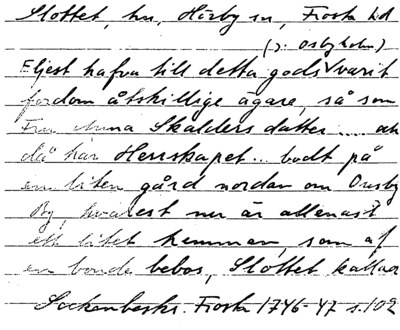 Slottet, hn, Hörby sn, Frosta hd
(ɔ: Osbyholm)
Eljest hafva till detta gods varit
fordom åtskillige ägare, så som
Fru Anna Skalders datter .... och
då har Herrskapet... bodt på
en liten gård nordan om Onsby
By, hvarest nu är allenast
ett litet hemman, som af
en bonde bebos, Slottet kallad
Sockenbeskr. Frosta 1746-47 s. 102